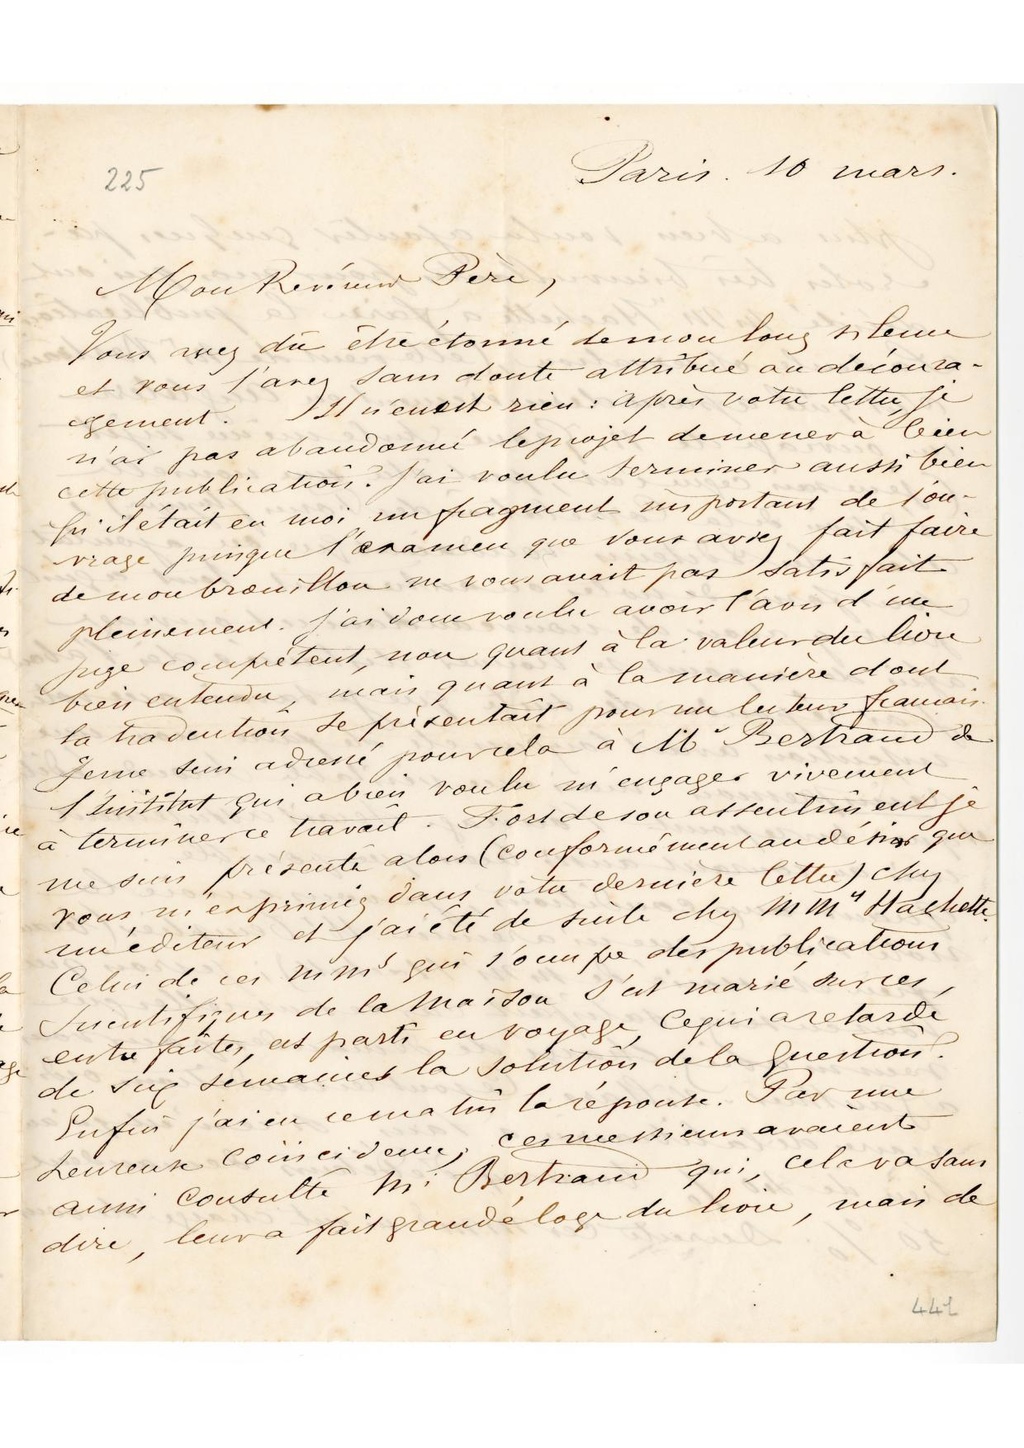 225
Paris. 10 mars.
Mon Révérend Père,
Vous avez dû être étonné de mon long silence
et vous l'avez sans doute attribué au découra-
gement. Il n'en est rien : après votre lettre, je
n'ai pas abandonné le projet de mener à bien
cette publication. J'ai voulu terminer aussi bien
qu'il était en moi un fragment important de l'ou-
vrage puisque l'examen que vous aviez fait faire
de mon brouillon ne vous avait pas satisfait
pleinement. J'ai donc voulu avoir l'avis d'un
juge compétent, non quant à la valeur du livre
bien entendu, mais quant à la manière dont
la traduction se présentait pour un lecteur français.
Je me suis adressé pour cela à Mr Bertrand de
l'Institut qui a bien voulu m'engager vivement
à terminer ce travail. Fort de son assentiment je
me suis présenté alors (conformément au désir que
vous m'exprimiez dans votre dernière lettre) chez
un éditeur et j'ai été de suite chez MMrs Hachette.
Celui de ces MMrs qui s'occupe des publications
scientifiques de la maison s'est marié sur ces
entrefaites, est parti en voyage, ce qui a retardé
de six semaines la solution de la question.
Enfin j'ai eu ce matin la réponse. Par une
heureuse coïncidence, ces messieurs avaient
aussi consulté Mr Bertrand qui, cela va sans
dire, leur a fait grand éloge du livre, mais de
442